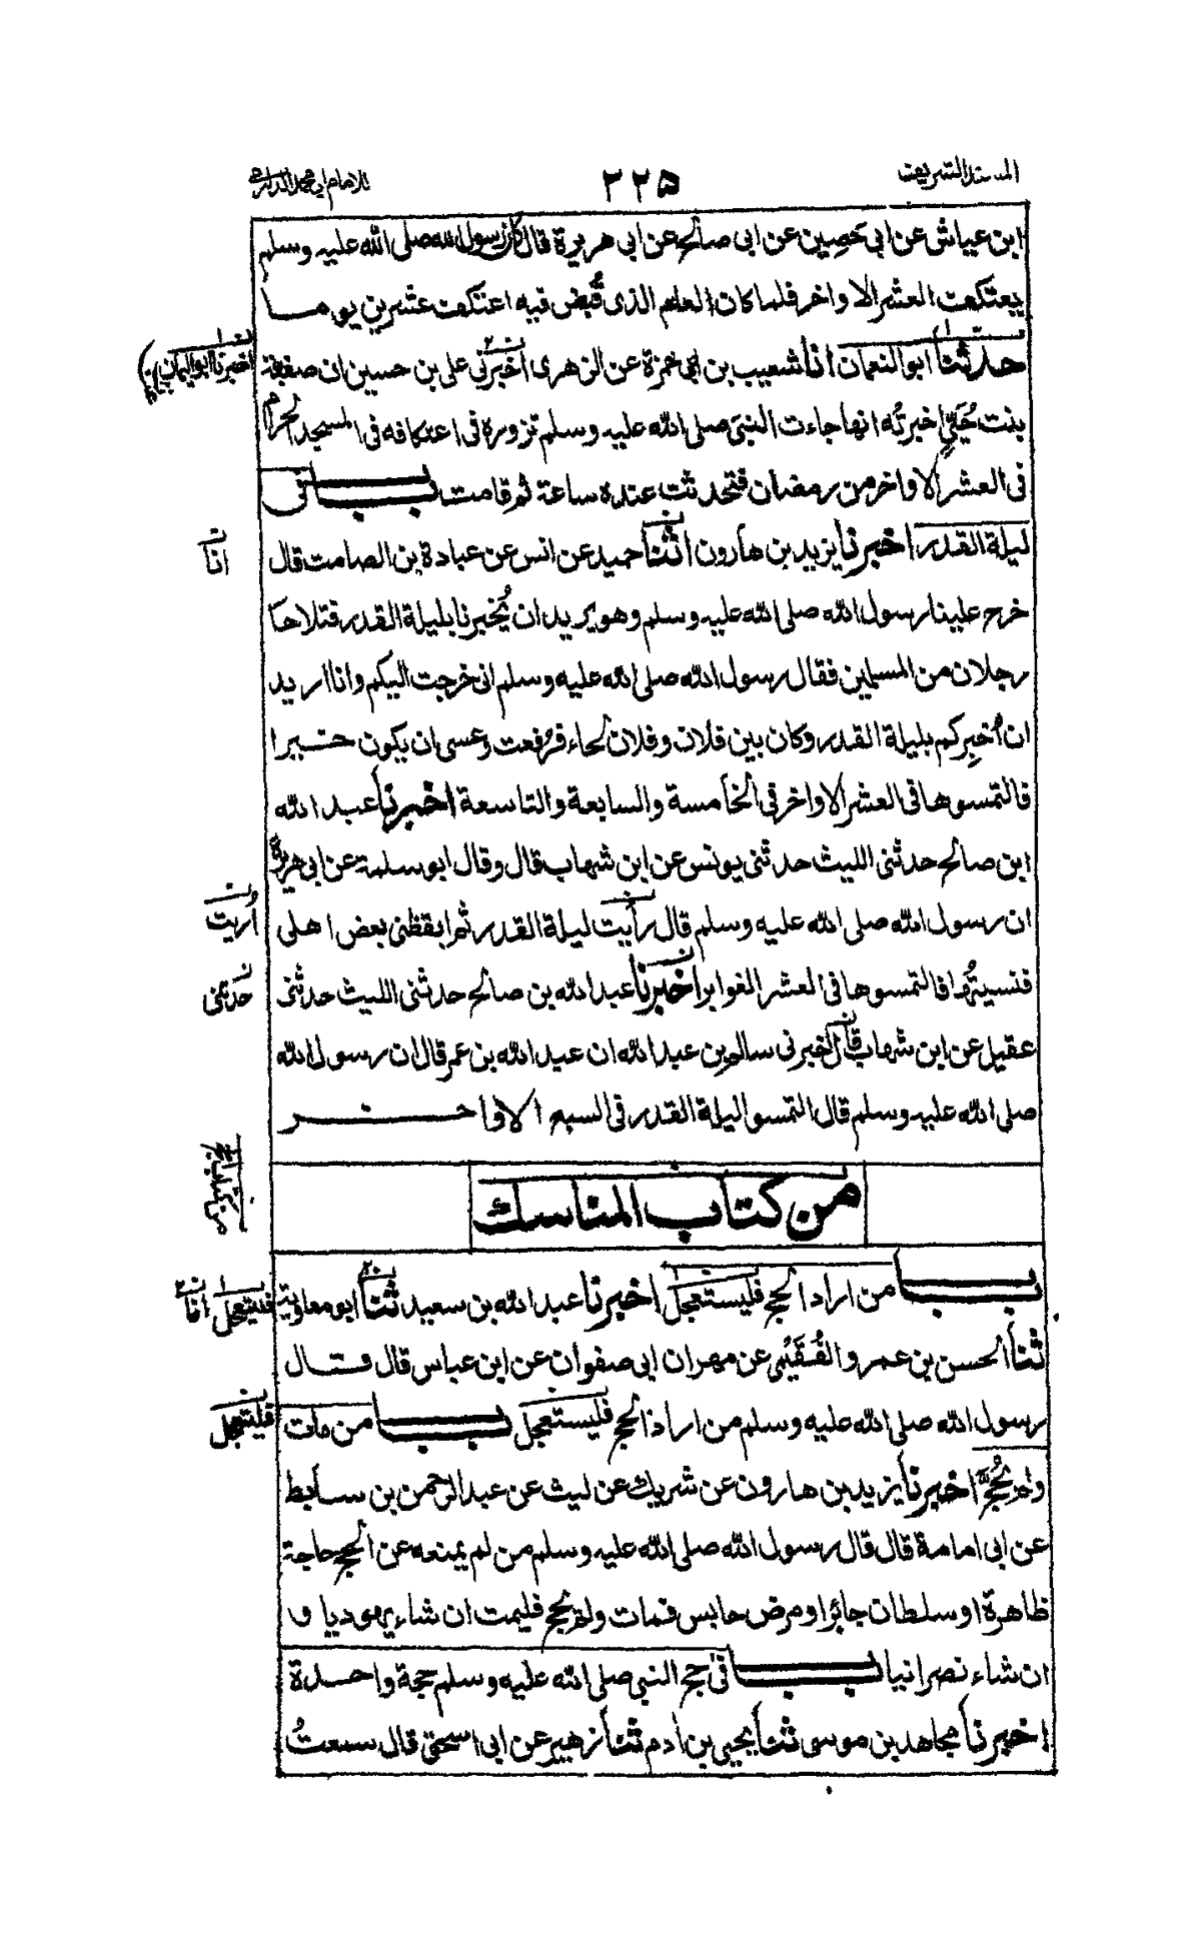 المسند الشريف
٢٢٥
للامام ابي محمد الدارمي
ابن عياش عن ابي حَصِين عن ابى صالح عن ابى هريرة قال كان رسول الله صلى الله عليه وسلم
يعتكف العشر الاواخر فلما كان العام الذى قُبض فيه اعتكف عشرين يوما
حدثنا ابو النعمان انا شعيب بن ابي حمزة عن الزهرى اخبرنى على بن حسين ان صفية
اخبرنا ابو اليمان
بنت حُيَيٍّ اخبرتُه انها جاءت النبى صلى الله عليه وسلم تزوره فى اعتكافه فى المسجد الحرام
فى العشر الاواخر من رمضان فتحدثت عنده ساعة ثم قامت باب فى
ليلة القدر اخبرنا يزيد بن هارون اثنا حميد عن انس عن عبادة بن الصامت قال
انا
خرج علينا رسول الله صلى الله عليه وسلم وهو يريد ان يُخبرنا بليلة القدر فتلاحا
رجلان من المسلمين فقال رسول الله صلى الله عليه وسلم انى خرجت اليكم وانا اريد
ان اُخبِركم بليلة القدر وكان بين فلان وفلان لحاء فرُفعت وعسى ان يكون خيرا
فالتمسوها فى العشر الاواخر فى الخامسة والسابعة والتاسعة اخبرنا عبد الله
ابن صالح حدثنى الليث حدثنى يونس عن ابن شهاب قال وقال ابو سلمة عن ابى هريرة
ان رسول الله صلى الله عليه وسلم قال رأيت ليلة القدر ثم ايقظنى بعض اهلى
اُريت
فنسيتُها فالتمسوها فى العشر الغوابر اخبرنا عبد الله بن صالح حدثنى الليث حدثنى
حدثنى
عقيل عن ابن شهاب قال اخبرنى سالم بن عبد الله ان عبد الله بن عمر قال ان رسول الله
صلى الله عليه وسلم قال التمسوا ليلة القدر فى السبع الاواخر
من كتاب المناسك
من كتاب الحج
باب من اراد الحج فليستعجل اخبرنا عبد الله بن سعيد ثنا ابو معاوية
فليتعجل انا
ثنا الحسن بن عمرو الفُقَيْمى عن مهران ابى صفوان عن ابن عباس قال قال
رسول الله صلى الله عليه وسلم من اراد الحج فليستعجل باب من مات
فليتعجل
ولم يحُجَّ اخبرنا يزيد بن هارون عن شريك عن ليث عن عبد الرحمن بن سابط
عن ابى امامة قال قال رسول الله صلى الله عليه وسلم من لم يمنعه عن الحج حاجة
ظاهرة او سلطان جائر او مرض حابس فمات ولم يحج فليمت ان شاء يهوديا و
ان شاء نصرانيا باب فى حج النبى صلى الله عليه وسلم حجة واحدة
اخبرنا مجاهد بن موسى ثنا يحيى بن ادم ثنا زهير عن ابى اسحق قال سمعتُ